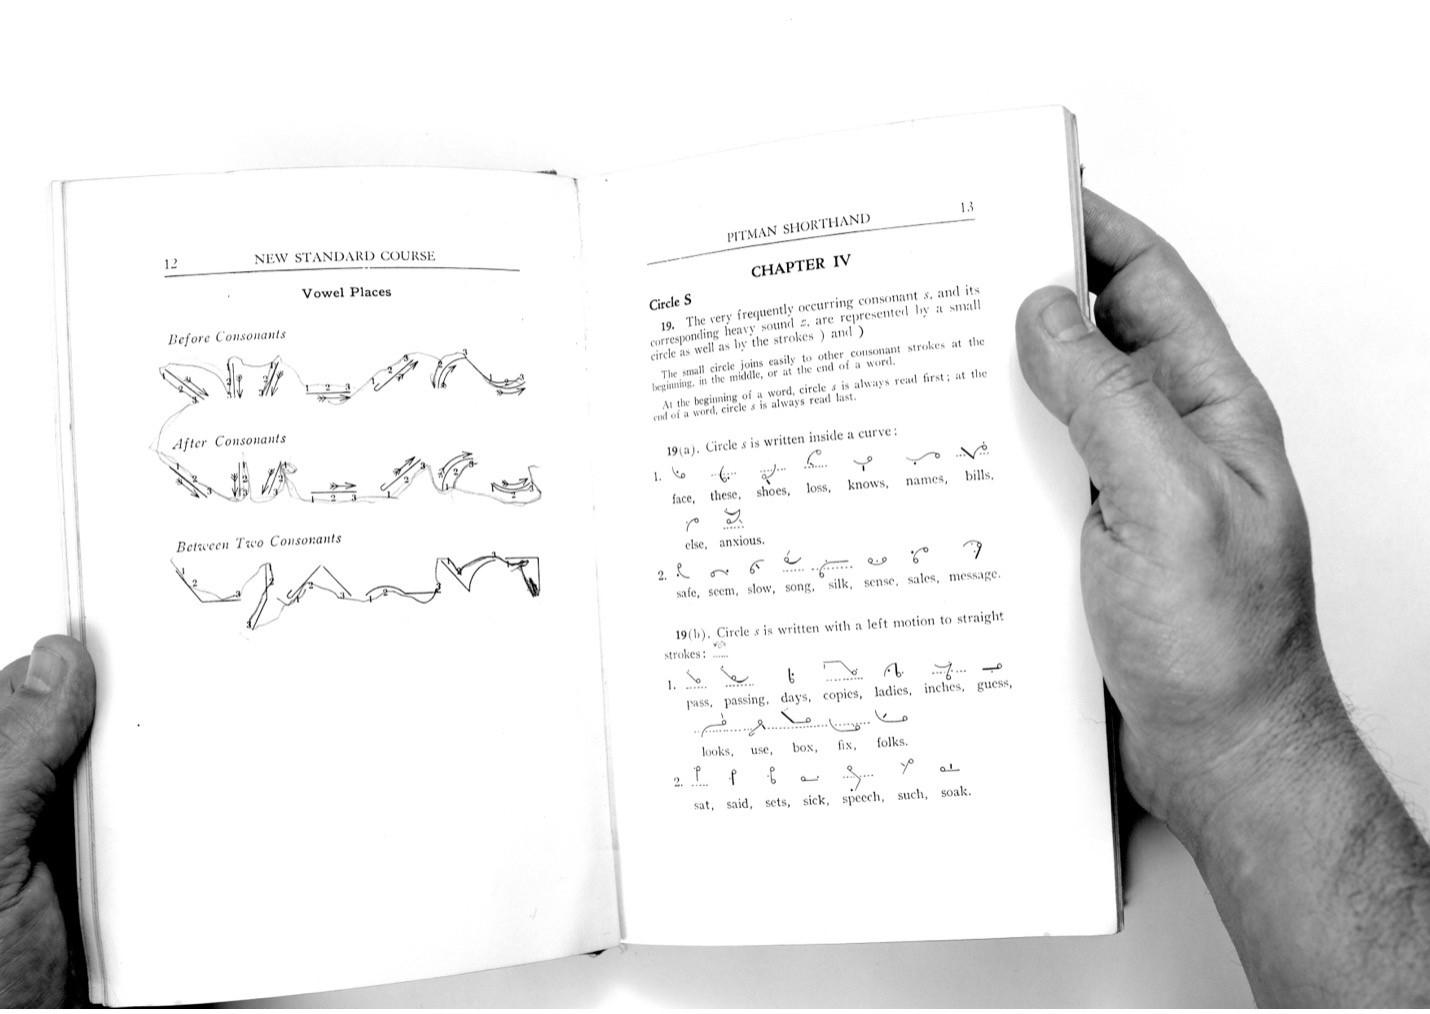 12 NEW STANDARD COURSE
Vowel Places
Before Consonants
After Consonants
Between Two Consonants
PITMAN SHORTHAND 13
CHAPTER IV
Circle S
19. The very frequently occurring consonant s, and its
corresponding heavy sound z, are represented by a small
circle as well as by the strokes ) and )
The small circle joins easily to other consonant strokes at the
beginning, in the middle, or at the end of a word.
At the beginning of a word, circle s is always read first; at the
end of a word, circle s is always read last.
19(a). Circle s is written inside a curve:
1.
face, these, shoes, loss, knows, names, bills,
else, anxious.
2.
safe, seem, slow, song, silk, sense, sales, message.
19(b). Circle s is written with a left motion to straight
strokes: ......
1.
pass, passing, days, copies, ladies, inches, guess,
looks, use, box, fix, folks.
2.
sat, said, sets, sick, speech, such, soak.